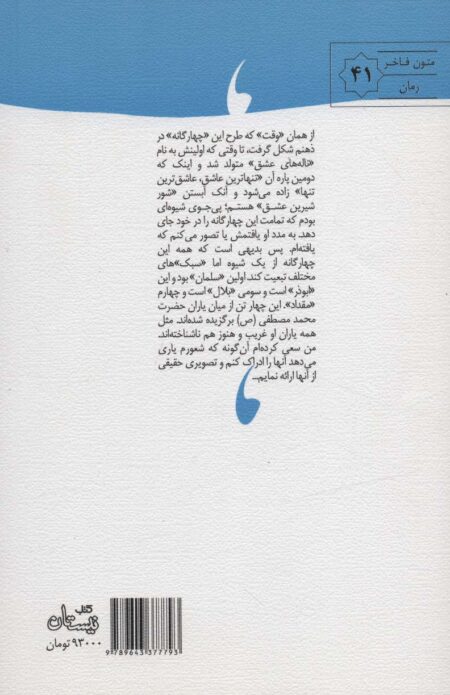 متون فاخر
۴۱
رمان
از همان «وقت» که طرح این «چهارگانه» در
ذهنم شکل گرفت، تا وقتی که اولینش به نام
«ناله‌های عشق» متولد شد و اینک که
دومین پاره آن «تنهاترین عاشق، عاشق‌ترین
تنها» زاده می‌شود و آنک آبستن «شور
شیرین عشق» هستم؛ پی‌جوی شیوه‌ای
بودم که تمامت این چهارگانه را در خود جای
دهد. به مدد او یافتمش یا تصور می‌کنم که
یافته‌ام. پس بدیهی است که همه این
چهارگانه از یک شیوه اما «سبک»های
مختلف تبعیت کند. اولین «سلمان» بود و این
«ابوذر» است و سومی «بلال» است و چهارم
«مقداد». این چهار تن از میان یاران حضرت
محمد مصطفی (ص) برگزیده شده‌اند. مثل
همه یاران او غریب و هنوز هم ناشناخته‌اند.
من سعی کرده‌ام آن‌گونه که شعورم یاری
می‌دهد آنها را ادراک کنم و تصویری حقیقی
از آنها ارائه نمایم...
کتاب
نیستان
۹۳۰۰۰ تومان
9 789643 377793